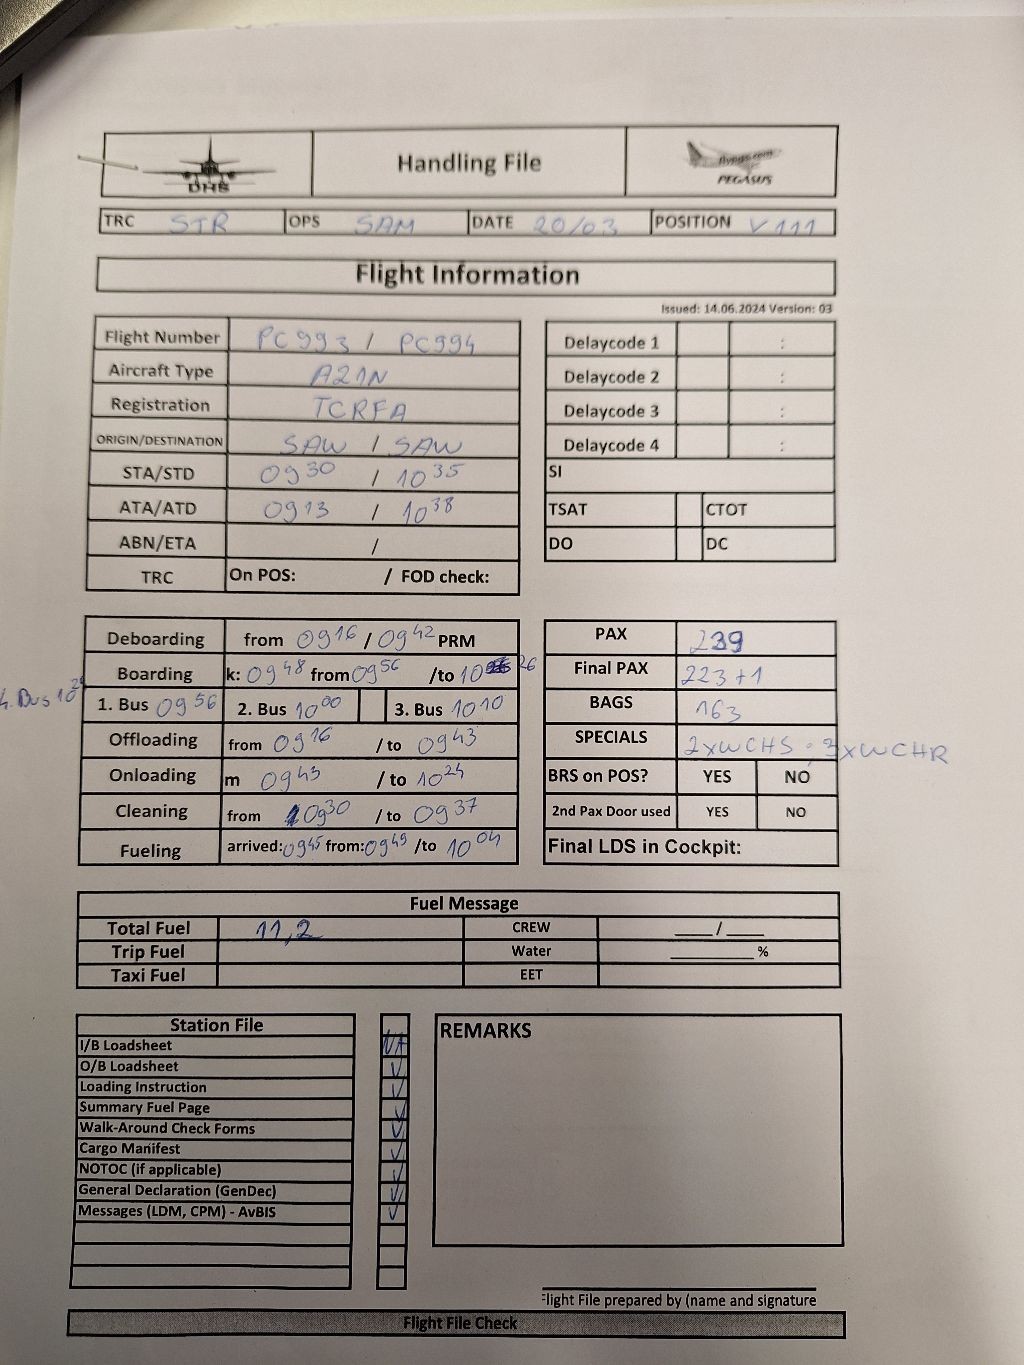 DHS
Handling File
flypgs.com
PEGASUS
TRC STR OPS SAM DATE 20/03 POSITION V111
Flight Information
Issued: 14.06.2024 Version: 03
Flight Number PC993 / PC994
Aircraft Type A21N
Registration TCRFA
ORIGIN/DESTINATION SAW / SAW
STA/STD 0930 / 1035
ATA/ATD 0913 / 1038
ABN/ETA /
TRC On POS: / FOD check:
Delaycode 1 :
Delaycode 2 :
Delaycode 3 :
Delaycode 4 :
SI
TSAT CTOT
DO DC
Deboarding from 0916 / 0942 PRM
Boarding k: 0948 from 0956 /to 1026
4. Bus
1. Bus 0956 2. Bus 1000 3. Bus 1010
Offloading from 0916 / to 0943
Onloading m 0943 / to 1024
Cleaning from 0930 / to 0937
Fueling arrived: 0945 from: 0949 /to 1004
PAX 239
Final PAX 223+1
BAGS 163
SPECIALS 2xWCHS 3xWCHR
BRS on POS? YES NO
2nd Pax Door used YES NO
Final LDS in Cockpit:
Fuel Message
Total Fuel 11,2 CREW ___/___
Trip Fuel Water ________ %
Taxi Fuel EET
Station File
I/B Loadsheet NA
O/B Loadsheet ✓
Loading Instruction ✓
Summary Fuel Page ✓
Walk-Around Check Forms ✓
Cargo Manifest ✓
NOTOC (if applicable) ✓
General Declaration (GenDec) ✓
Messages (LDM, CPM) - AvBIS ✓
REMARKS
Flight File prepared by (name and signature
Flight File Check